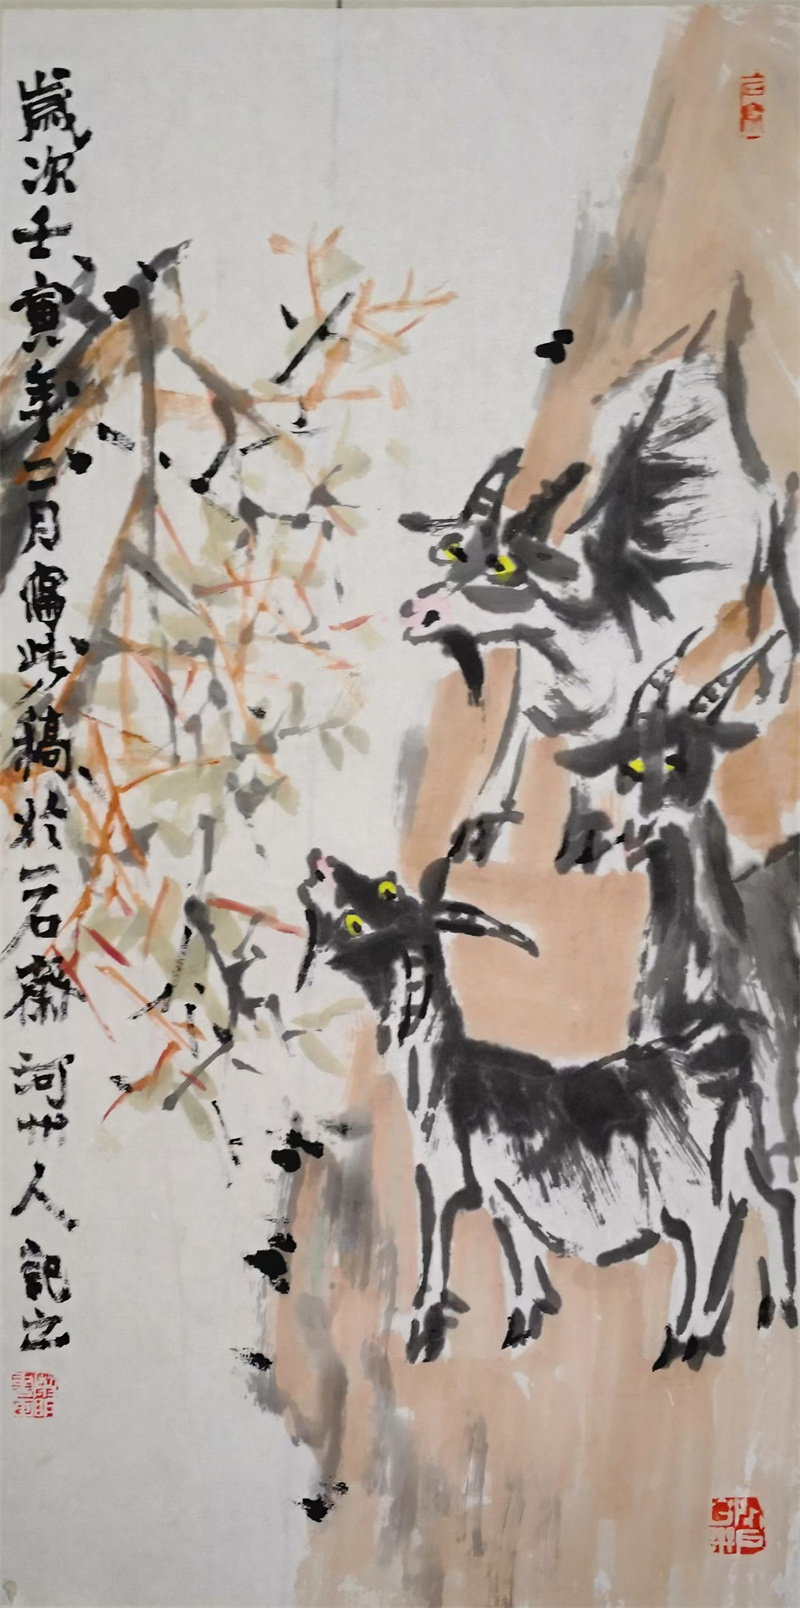 歲次壬寅年二月寫此稿於一石齋河州人記之